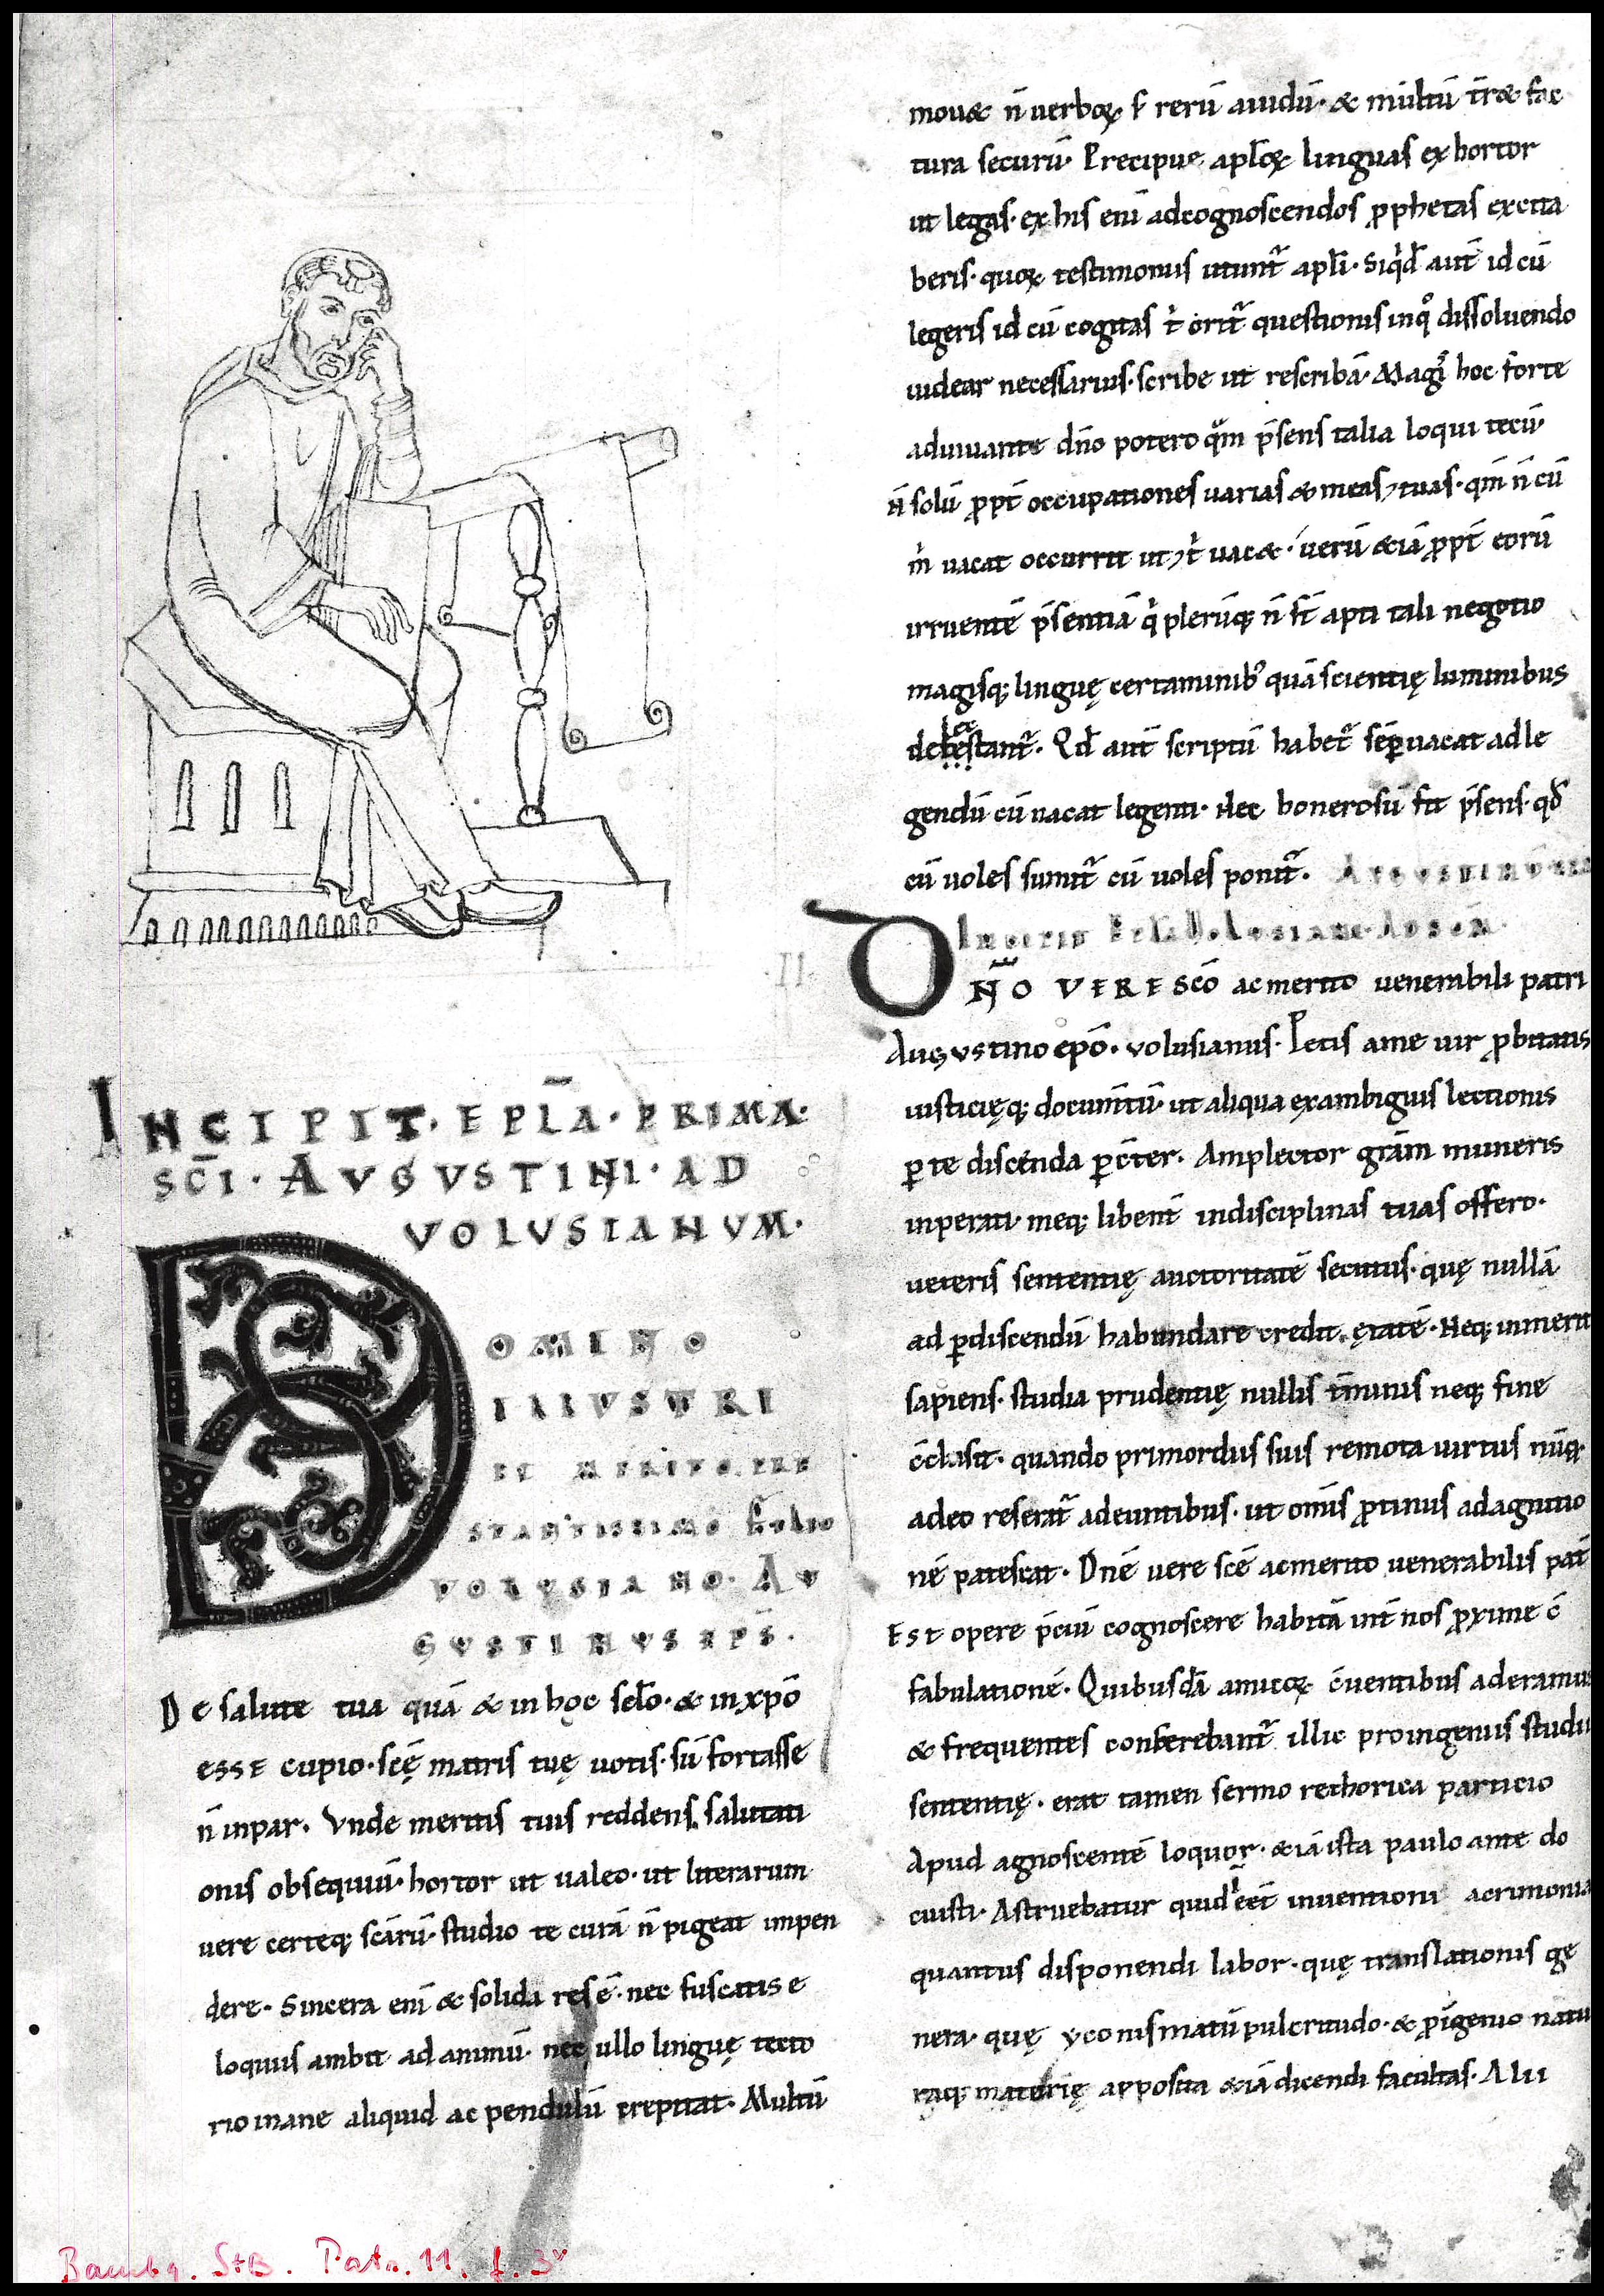 INCIPIT · EPLA̅ · PRIMA ·
SC̅I · AVGVSTINI · AD
VOLUSIANVM ·
DOMINO
ILLVSTRI
ET MERITO PRE
STANTISSIMO FILIO
VOLVSIANO · AV
GVSTINVS EP̅S ·
De salute tua quā & in hoc sc̅lo · & in xp̅o
esse cupio · sc̅ę matris tuę uotis · sū fortasse
n̄ inpar · Vnde meritis tuis reddens salutati
onis obsequiū · hortor ut ualeo · ut literarum
uere certeq; sc̅arū · studio te curā n̄ pigeat impen
dere · Sincera eni̅ & solida res ē · nec fuscatis e
loquiis ambit ad animū · nec ullo linguę tecto
rio inane aliquid ac pendulū crepitat · Multū
mou& n̄ uerboꝝ · s; rerū auidū · & multū
tura securū · Precipue apl̅oꝝ linguas exhortor
ut legas · ex his eni̅ ad cognoscendos ꝓphetas excita
beris · quoꝝ testimoniis utunt̃ apl̅i · Siq̇d aut̅ id cū
legeris id cū cogitas t̍ orit̃ questionis inq̊ dissoluendo
uidear necessarius · scribe ut rescribā · Magi᷒ hoc forte
adiuuante dn̅o potero qm̅ p̅sens talia loqui tecū ·
n̄ solū ꝓpt̅ occupationes uarias & meas ⁊ tuas · qm̅ n̄ cū
m̍ uacat occurrit ut ⁊ t̍ uac& · uerū &iā ꝓpt̅ eorū
irruentē p̅sentiā q̍ plerūq; n̄ st̅ apti tali negotio
magisq; linguę certaminib᷒ quā scientię luminibus
delectant̃ · Qd̅ aut̅ scriptū habet̃ sēꝑ uacat ad le
gendū cū uacat legenti · Nec honerosū fit p̅sens · qd̅
cū uoles sumit̃ cū uoles ponit̃ ·
II ·
DN̅O VERE SC̅O ac merito venerabili patri
Augvstino ep̅o · volusianus · Petis a me uir ꝓbitatis
iusticięq; docum̅tū · ut aliqua ex ambiguis lectionis
ꝑ te discenda ꝑc̅ter · Amplector gr̅am muneris
inperati · meq; libent̅ in disciplinas tuas offero ·
ueteris sententię auctoritatē secutus · quę nullā
ad ꝑdiscendū habundare credit ętatē · Neq; inmerit
sapiens · studia prudentię nullis t̅minis neq; fine
c̅clusit · quando primordiis suis remota uirtus nūq;
adeo reserat̃ adeuntibus · ut om̅is ꝓtinus ad agnitio
nē patescat · Dn̅e vere sc̅e ac merito uenerabilis pat̅
Est opere p̅ciū cognoscere habitā int̅ nos ꝓxime c̅
fabulationē · Quibusdā amicoꝝ c̅uentibus aderamus
& frequentes conferebant̃ illic pro ingeniis studii
sententię · erat tamen sermo rethorica particio
Apud agnoscentē loquor · &iā ista paulo ante do
cuisti · Astruebatur quid eēt inuentioni acrimonia
quantus disponendi labor · quę translationis ge
nera · quę yconismatū pulcritudo · & ꝓ ingenio natu
raq; materię apposita &iā dicendi facultas · Alii
Bambg. StB. Patr. 11, f. 3v